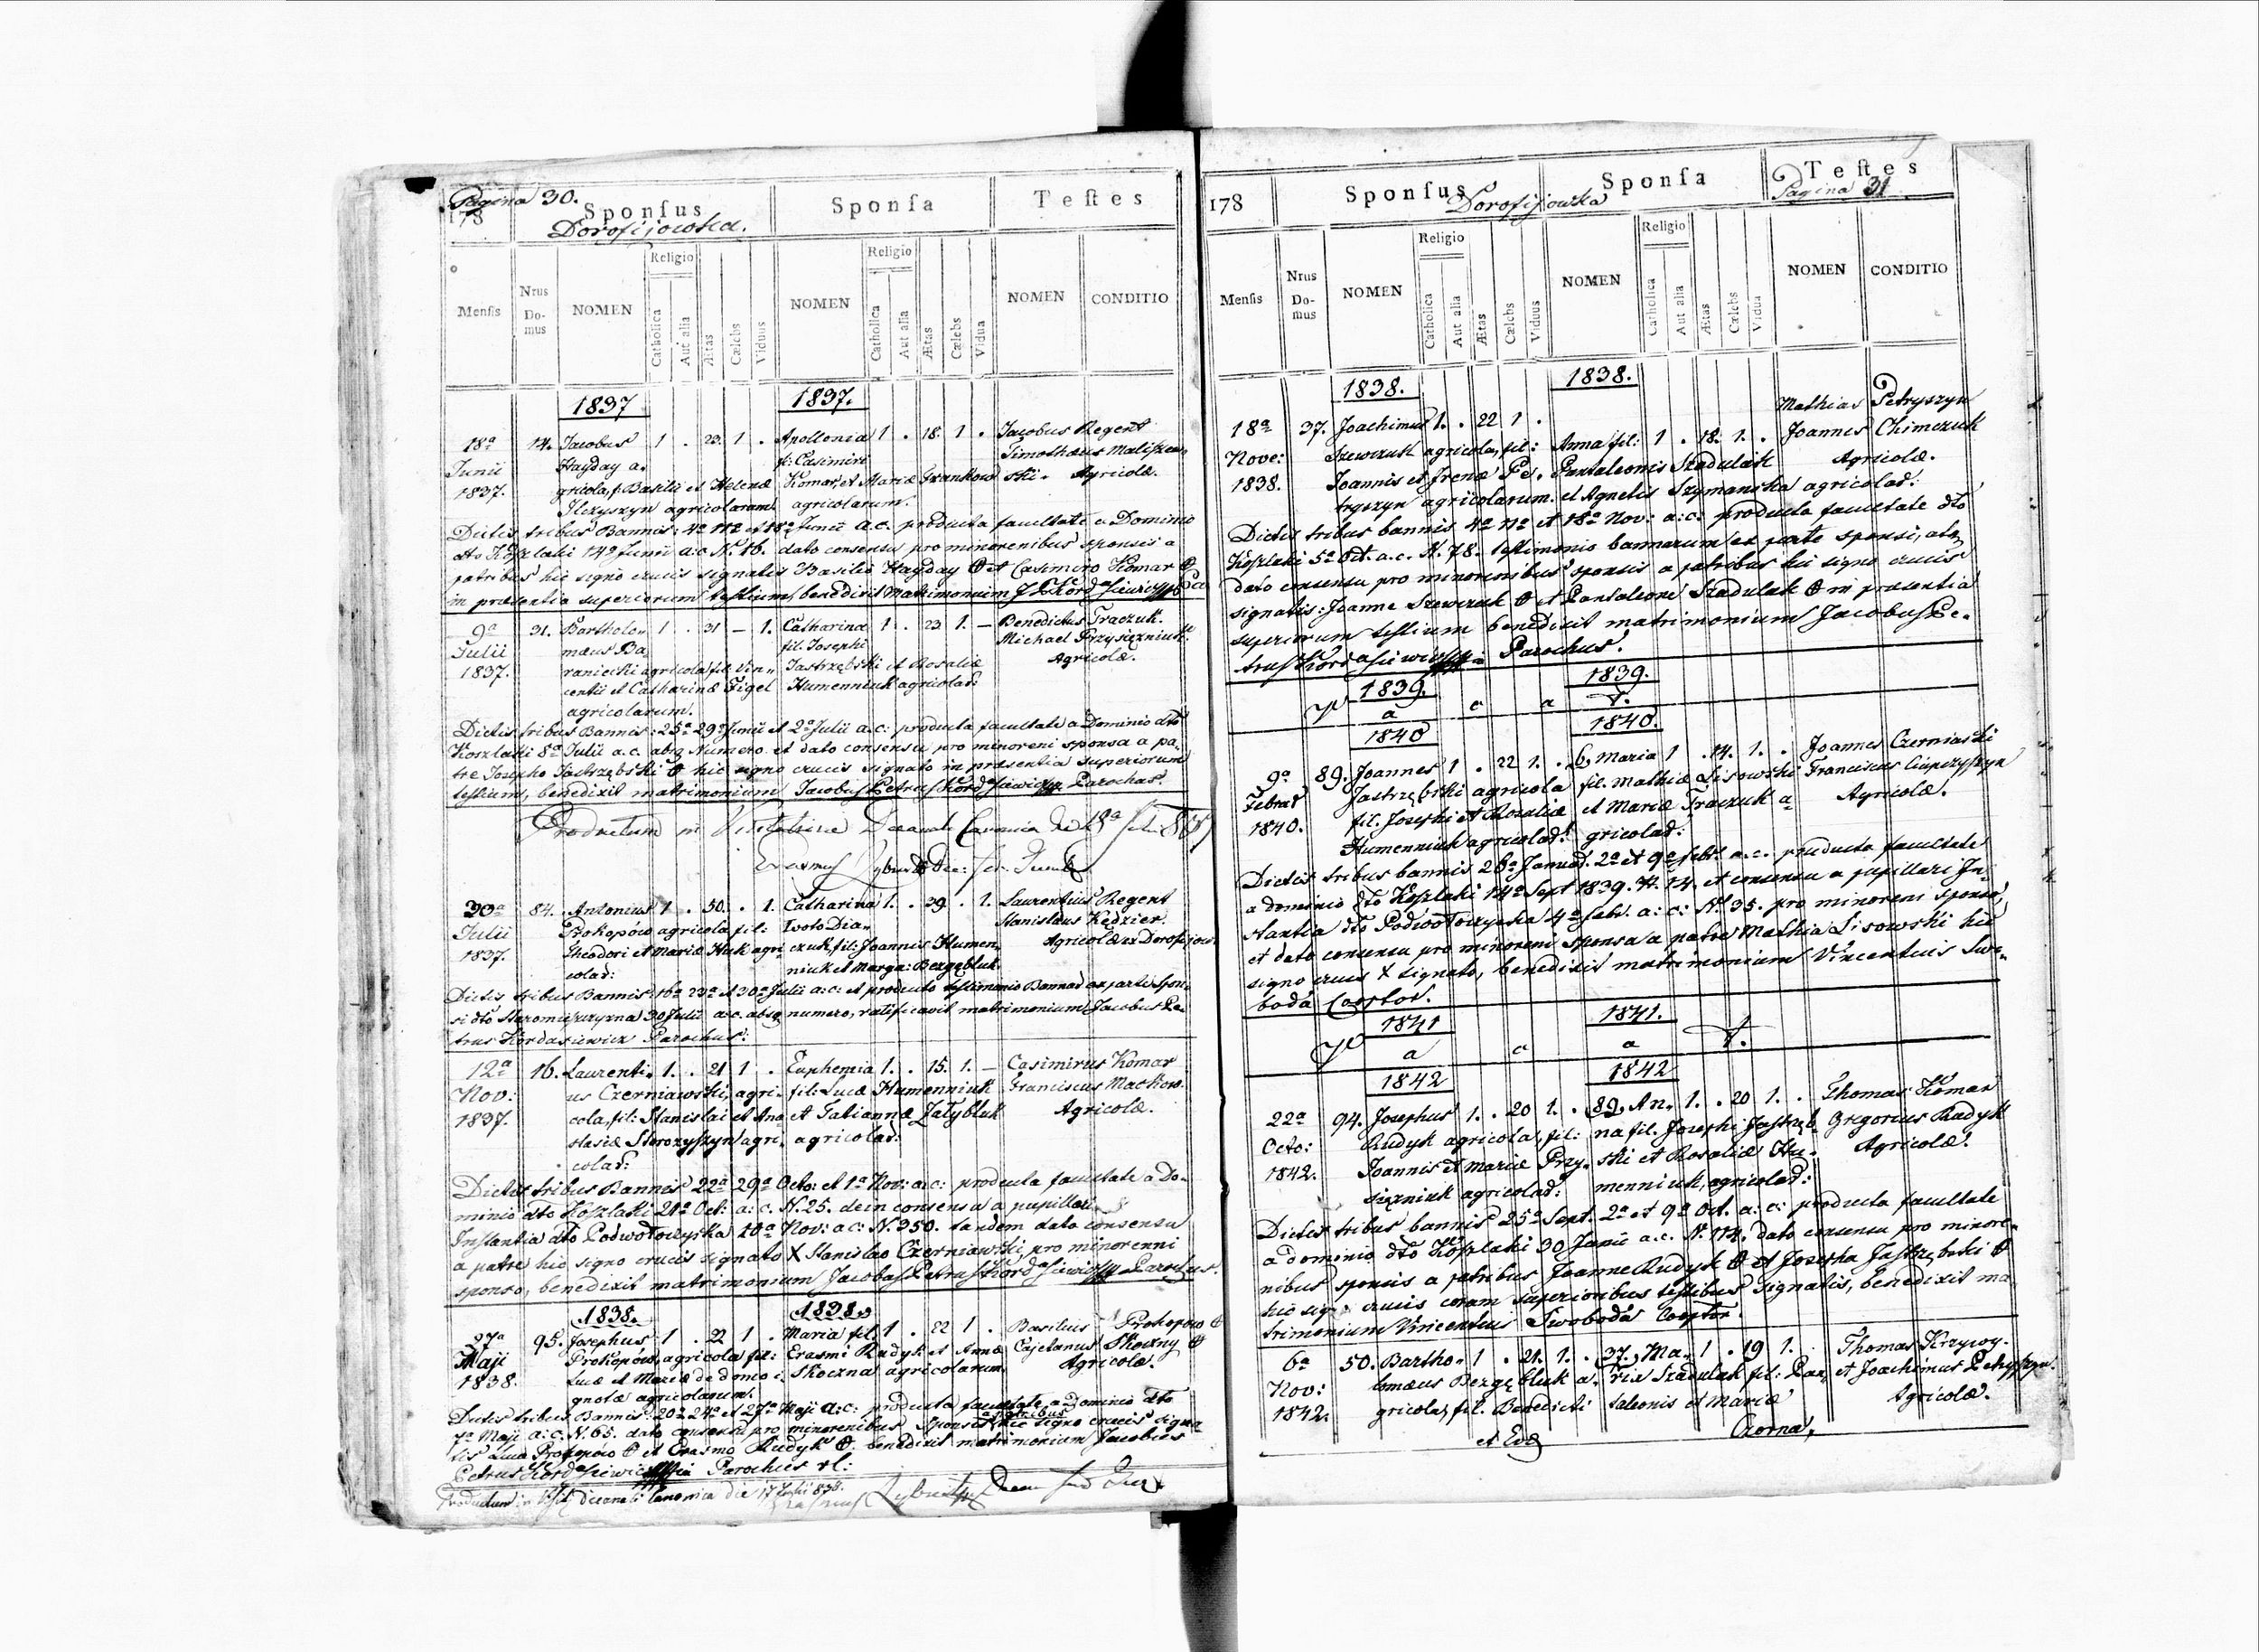 Pagina 30.
178
Sponsus
Sponsa
Testes
Dorofijowka.
Religio
Religio
Mensis
Nrus Domus
NOMEN
Catholica
Aut alia
Ætas
Cælebs
Viduus
NOMEN
Catholica
Aut alia
Ætas
Cælebs
Vidua
NOMEN
CONDITIO
1837
1837.
18a 14. Jacobus 1 . 23. 1 . Apollonia 1 . 18. 1 . Jacobus Regent
Junii Hayday a. f: Casimiri Timothæus
1837. gricola, f: Basilii et Helenæ Komar, et Mariæ ski. Agricolæ.
agricolarum. agricolarum.
Dictis tribus Bannis: 4a 11a et 18a Junii a.c. producta facultate a Dominio
dto Koszlaki 14a Junii a:c N. 16. dato consensu pro minorenibus sponsis a
patribus hic signo crucis signatis Basilio Hayday et Casimiro Komar
in præsentia superiorum testium, benedixit Matrimonium
9a 31. Bartholo- 1 . 31 – 1. Catharina 1 . 23 1. – Benedictus Traczuk.
Julii mæus Ba fil: Josephi Michael Przysiężniuk
1837. raniecki agricola fil: Vin- Jastrzębski et Rosaliæ Agricolæ.
centii et Catharinæ Figel Humenniuk agricolar:
agricolarum.
Dictis tribus Bannis: 25a 29a Junii et 2a Julii a.c: producta facultate a Dominio dto
Koszlaki 8a Julii a.c. absq Numero et dato consensu pro minoreni sponsa a pa-
tre Josepho Jastrzębski hic signo crucis signato in præsentia superiorum
testium, benedixit matrimonium Jacobus Petrus Kordasiewicz Parochus.
30a 84. Antonius 1 . 50. . 1. Catharina 1. . 29 . 1. Laurentius Regent
Julii Prokopów agricola fil: Stanislaus Kędzier
1837. Theodori et Mariæ Huk agri czuk, fil: Joannis Humen- Agricolæ ex Dorofijow:
colar: niuk et Marga:
Dictis tribus Bannis: 16a 23a et 30a Julii a:c: et producto testimonio Bannor ex parte Spon-
si dto 30 Julii a:c. absq numero, ratificavit matrimonium Jacobus Pe-
trus Kordasiewicz Parochus:
12a 16. Laurenti- 1. . 21 1 . Euphemia 1. . 15. 1. – Casimirus Komar
Nov: us Czerniawski, agri- fil: Lucæ Humenniuk Franciscus
1837. cola, fil: Stanislai et Ana et Tatiannæ Agricolæ.
stasiæ agri- agricolar:
colar:
Dictis tribus Bannis 22a 29a Octo: et 1a Nov: a:c: producta facultate a Do-
minio dto Koszlaki 21a Oct: a: c. N. 25. dein consensu a pupillari
Instantia dto Podwołoczyska 10a Nov: a c: N. 350. tandem dato consensu
a patre hic signo crucis signato X Stanislao Czerniawski, pro minorenni
sponso, benedixit matrimonium Jacobus Petrus Kordasiewicz Parochus.
1838.
1838.
27a 95. Josephus 1 . 22 1 . Maria fil: 1 . 22 1 . Basilius Prokopów
Maji Prokopów agricola fil: Erasmi Rudyk et Annæ Cajetanus Skoczny
1838. Lucæ et Mariæ de domo i- Skoczna agricolarum Agricolæ.
gnotæ agricolarum.
Dictis tribus Bannis: 20a 24a et 27a Maji a:c: producta facultate a Dominio dto
7a Maji a: c. N. 65. dato consensu pro minorenibus sponsis a patribus hic signo crucis signa
tis Luca Prokopów et Erasmo Rudyk benedixit matrimonium Jacobus
Petrus Kordasiewicz Parochus rl:
Productum in Visit: decanali Canonica die 17 838.
178
Sponsus
Sponsa
Testes
Dorofijowka
Pagina 31
Religio
Religio
Mensis
Nrus Domus
NOMEN
Catholica
Aut alia
Ætas
Cælebs
Viduus
NOMEN
Catholica
Aut alia
Ætas
Cælebs
Vidua
NOMEN
CONDITIO
1838.
1838.
Mathias Petryszyn
18a 37. Joachimus 1. . 22 1 . Anna fil: 1 . 18. 1. . Joannes Chimczuk
Nove: Szewczuk agricola, fil: Pantaleonis Szadulak Agricolæ.
1838. Joannis et Irenæ Pe- et Agnetis Szymanska agricolar:
tryszyn agricolarum.
Dictis tribus bannis 4a 11a et 18a Nov: a:c: producta facultate dto
Koszlaki 5a Oct. a.c. N. 78. testimonio bannorum ex parte sponsi, atq
dato consensu pro minorenibus sponsis a patribus hic signo crucis
signatis: Joanne Szewczuk et Pantaleone Szadulak in præsentia
superiorum testium benedixit matrimonium Jacobus Pe-
trus Kordasiewicz Parochus.
1839.
1839.
V a c a t.
1840
1840.
9a 89. Joannes 1 . 22 1. . Maria 1 . 14. 1. . Joannes Czerniaski
Februar Jastrzębski agricola fil. Mathiæ Lisowski Franciscus
1840. fil. Josephi et Rosaliæ et Mariæ Traczuk a Agricolæ.
Humenniuk agricolar: gricolar:
Dictis tribus bannis 26a Januar. 2a et 9a Febr. a.c. producta facultate
a dominio dto Koszlaki 14a Sept 1839. N. 14. et consensu a pupillari In-
stantia dto Podwołoczyska 4a Febr. a: c: N. 35. pro minoreni sponso,
et dato consensu pro minoreni sponsa a patre Mathia Lisowski hic
signo crucis X signato, benedixit matrimonium Vincentius Swo-
boda Cooptor.
1841
1841.
V a c a t.
1842
1842
22a 94. Josephus 1. . 20 1. . 89. An- 1. . 20 1. . Thomas Komar
Octo: Rudyk agricola, fil: na fil. Josephi Jastrzęb- Gregorius Rudyk
1842. Joannis et Mariæ Przy- ski et Rosaliæ Hu- Agricolæ.
siężniuk agricolar: menniuk, agricolar:
Dictis tribus bannis 25a Sept. 2a et 9a Oct. a: c: producta facultate
a dominio dto Koszlaki 30 Junii a.c. N. 174. dato consensu pro minore-
nibus sponsis a patribus Joanne Rudyk et Josepho Jastrzębski
hic signo crucis coram superioribus testibus signatis, benedixit ma
trimonium Vincentius Swoboda Cooptor.
6a 50. Bartho- 1 . 21. 1. . 37. Ma- 1 . 19 1. Thomas Krzywy.
Nov: lomæus a- ria Szadulak fil: Pan et Joachimus Petryszyn.
1842. gricola, fil. Benedicti taleonis et Mariæ Agricolæ.
et Evæ Czorna,